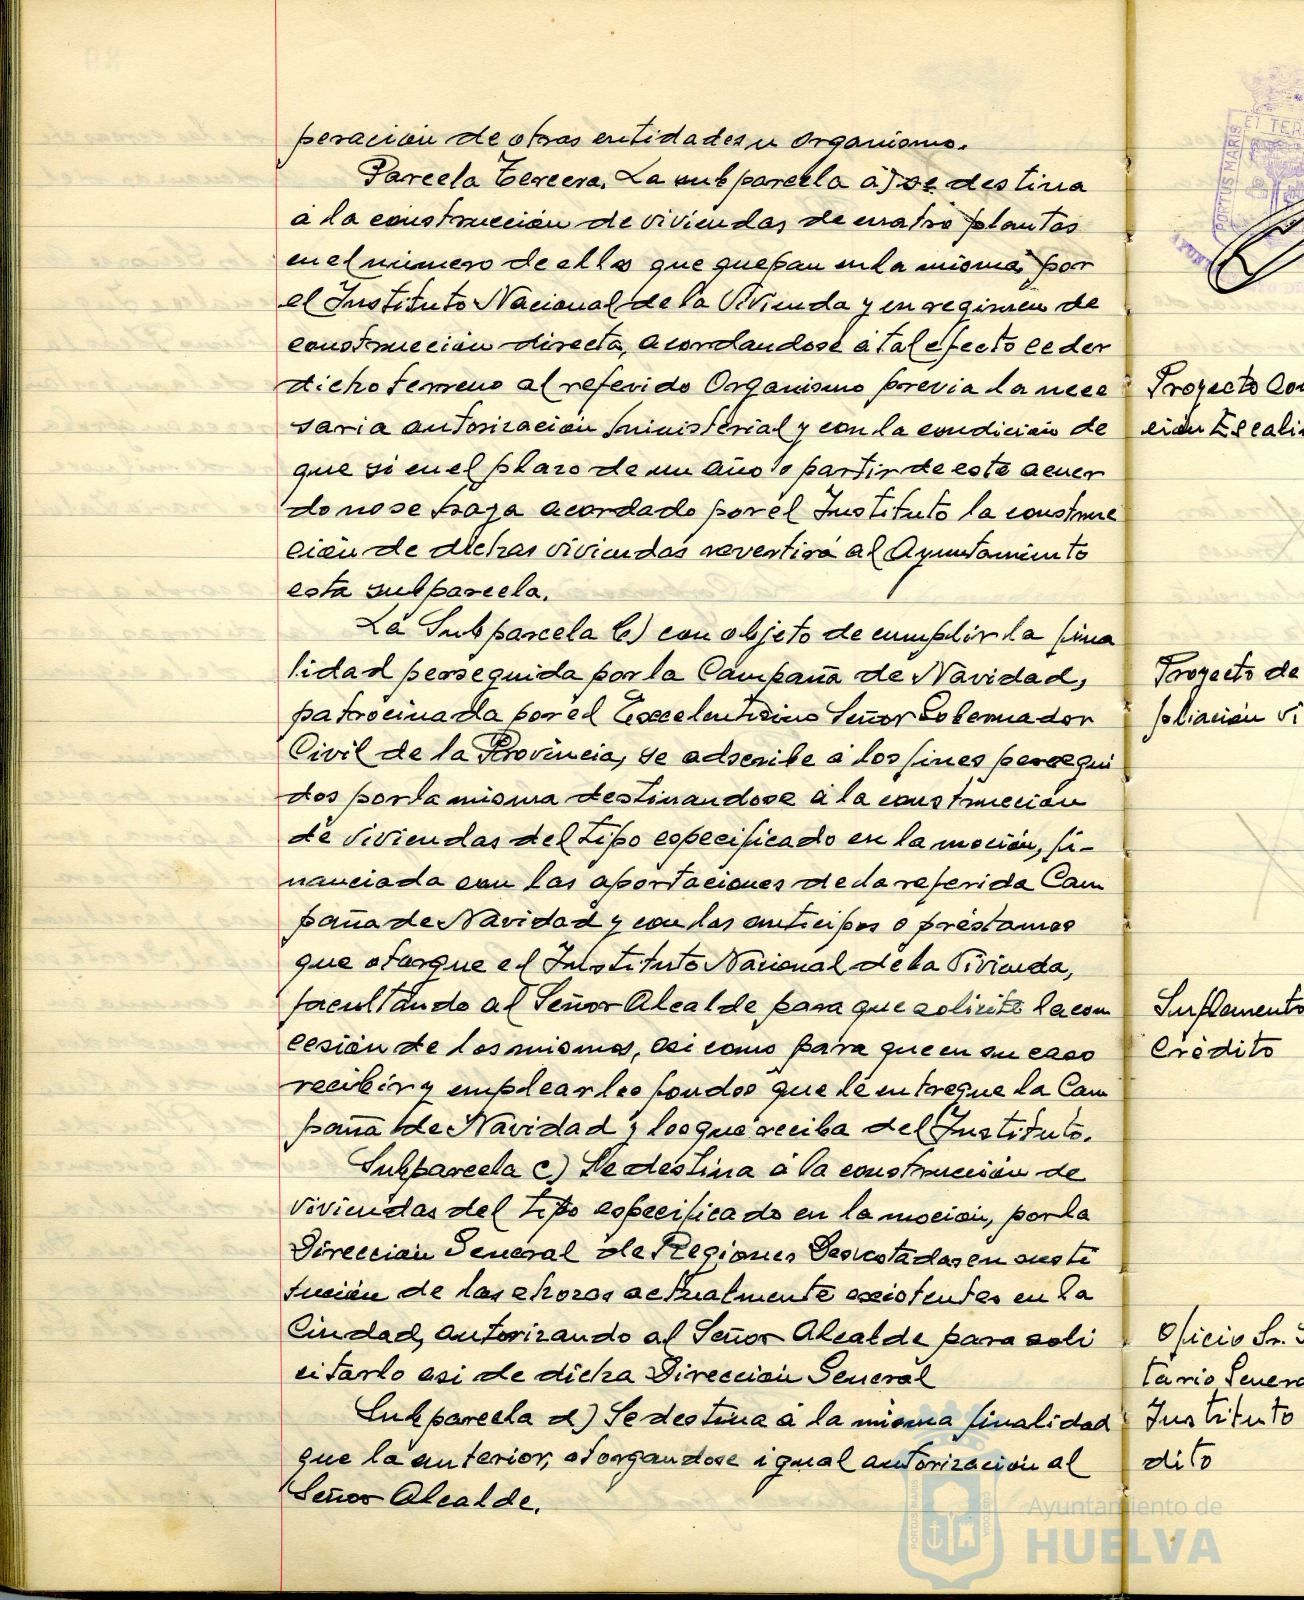 peración de otras entidades u organismo.
Parcela Tercera. La subparcela a) se destina
á la construcción de viviendas de cuatro plantas
en el número de ellas que quepan en la misma, por
el Instituto Nacional de la Vivienda y en regimen de
construcción directa, acordandose á tal efecto ceder
dicho terreno al referido Organismo previa la nece
saria autorización ministerial y con la condición de
que si en el plazo de un año a partir de este acuer
do no se haya acordado por el Instituto la construc
ción de dichas viviendas revertirá al Ayuntamiento
esta subparcela.
La Subparcela b) con objeto de cumplir la fina
lidad perseguida por la Campaña de Navidad,
patrocinada por el Excelentísimo Señor Gobernador
Civil de la Provincia, se adscribe á los fines persegui
dos por la misma destinandose á la construcción
de viviendas del tipo especificado en la moción, fi-
nanciada con las aportaciones de la referida Cam
paña de Navidad y con los anticipos o préstamos
que otorgue el Instituto Nacional de la Vivienda,
facultando al Señor Alcalde para que solicite la con
cesión de los mismos, asi como para que en su caso
recibir y emplear los fondos que le entregue la Cam
paña de Navidad y los que reciba del Instituto.
Subparcela c) Se destina á la construcción de
viviendas del tipo especificado en la moción, por la
Dirección General de Regiones Devastadas en susti
tución de las chozas actualmente existentes en la
Ciudad, autorizando al Señor Alcalde para soli
citarlo asi de dicha Dirección General
Subparcela d) Se destina á la misma finalidad
que la anterior, otorgandose igual autorización al
Señor Alcalde.
PORTUS MARIS
ET TER
Proyecto Con
ción Escali
Proyecto de
pliación vi
Suplemento
Crédito
Oficio Sr. S
tario Genera
Instituto
dito
Ayuntamiento de
HUELVA